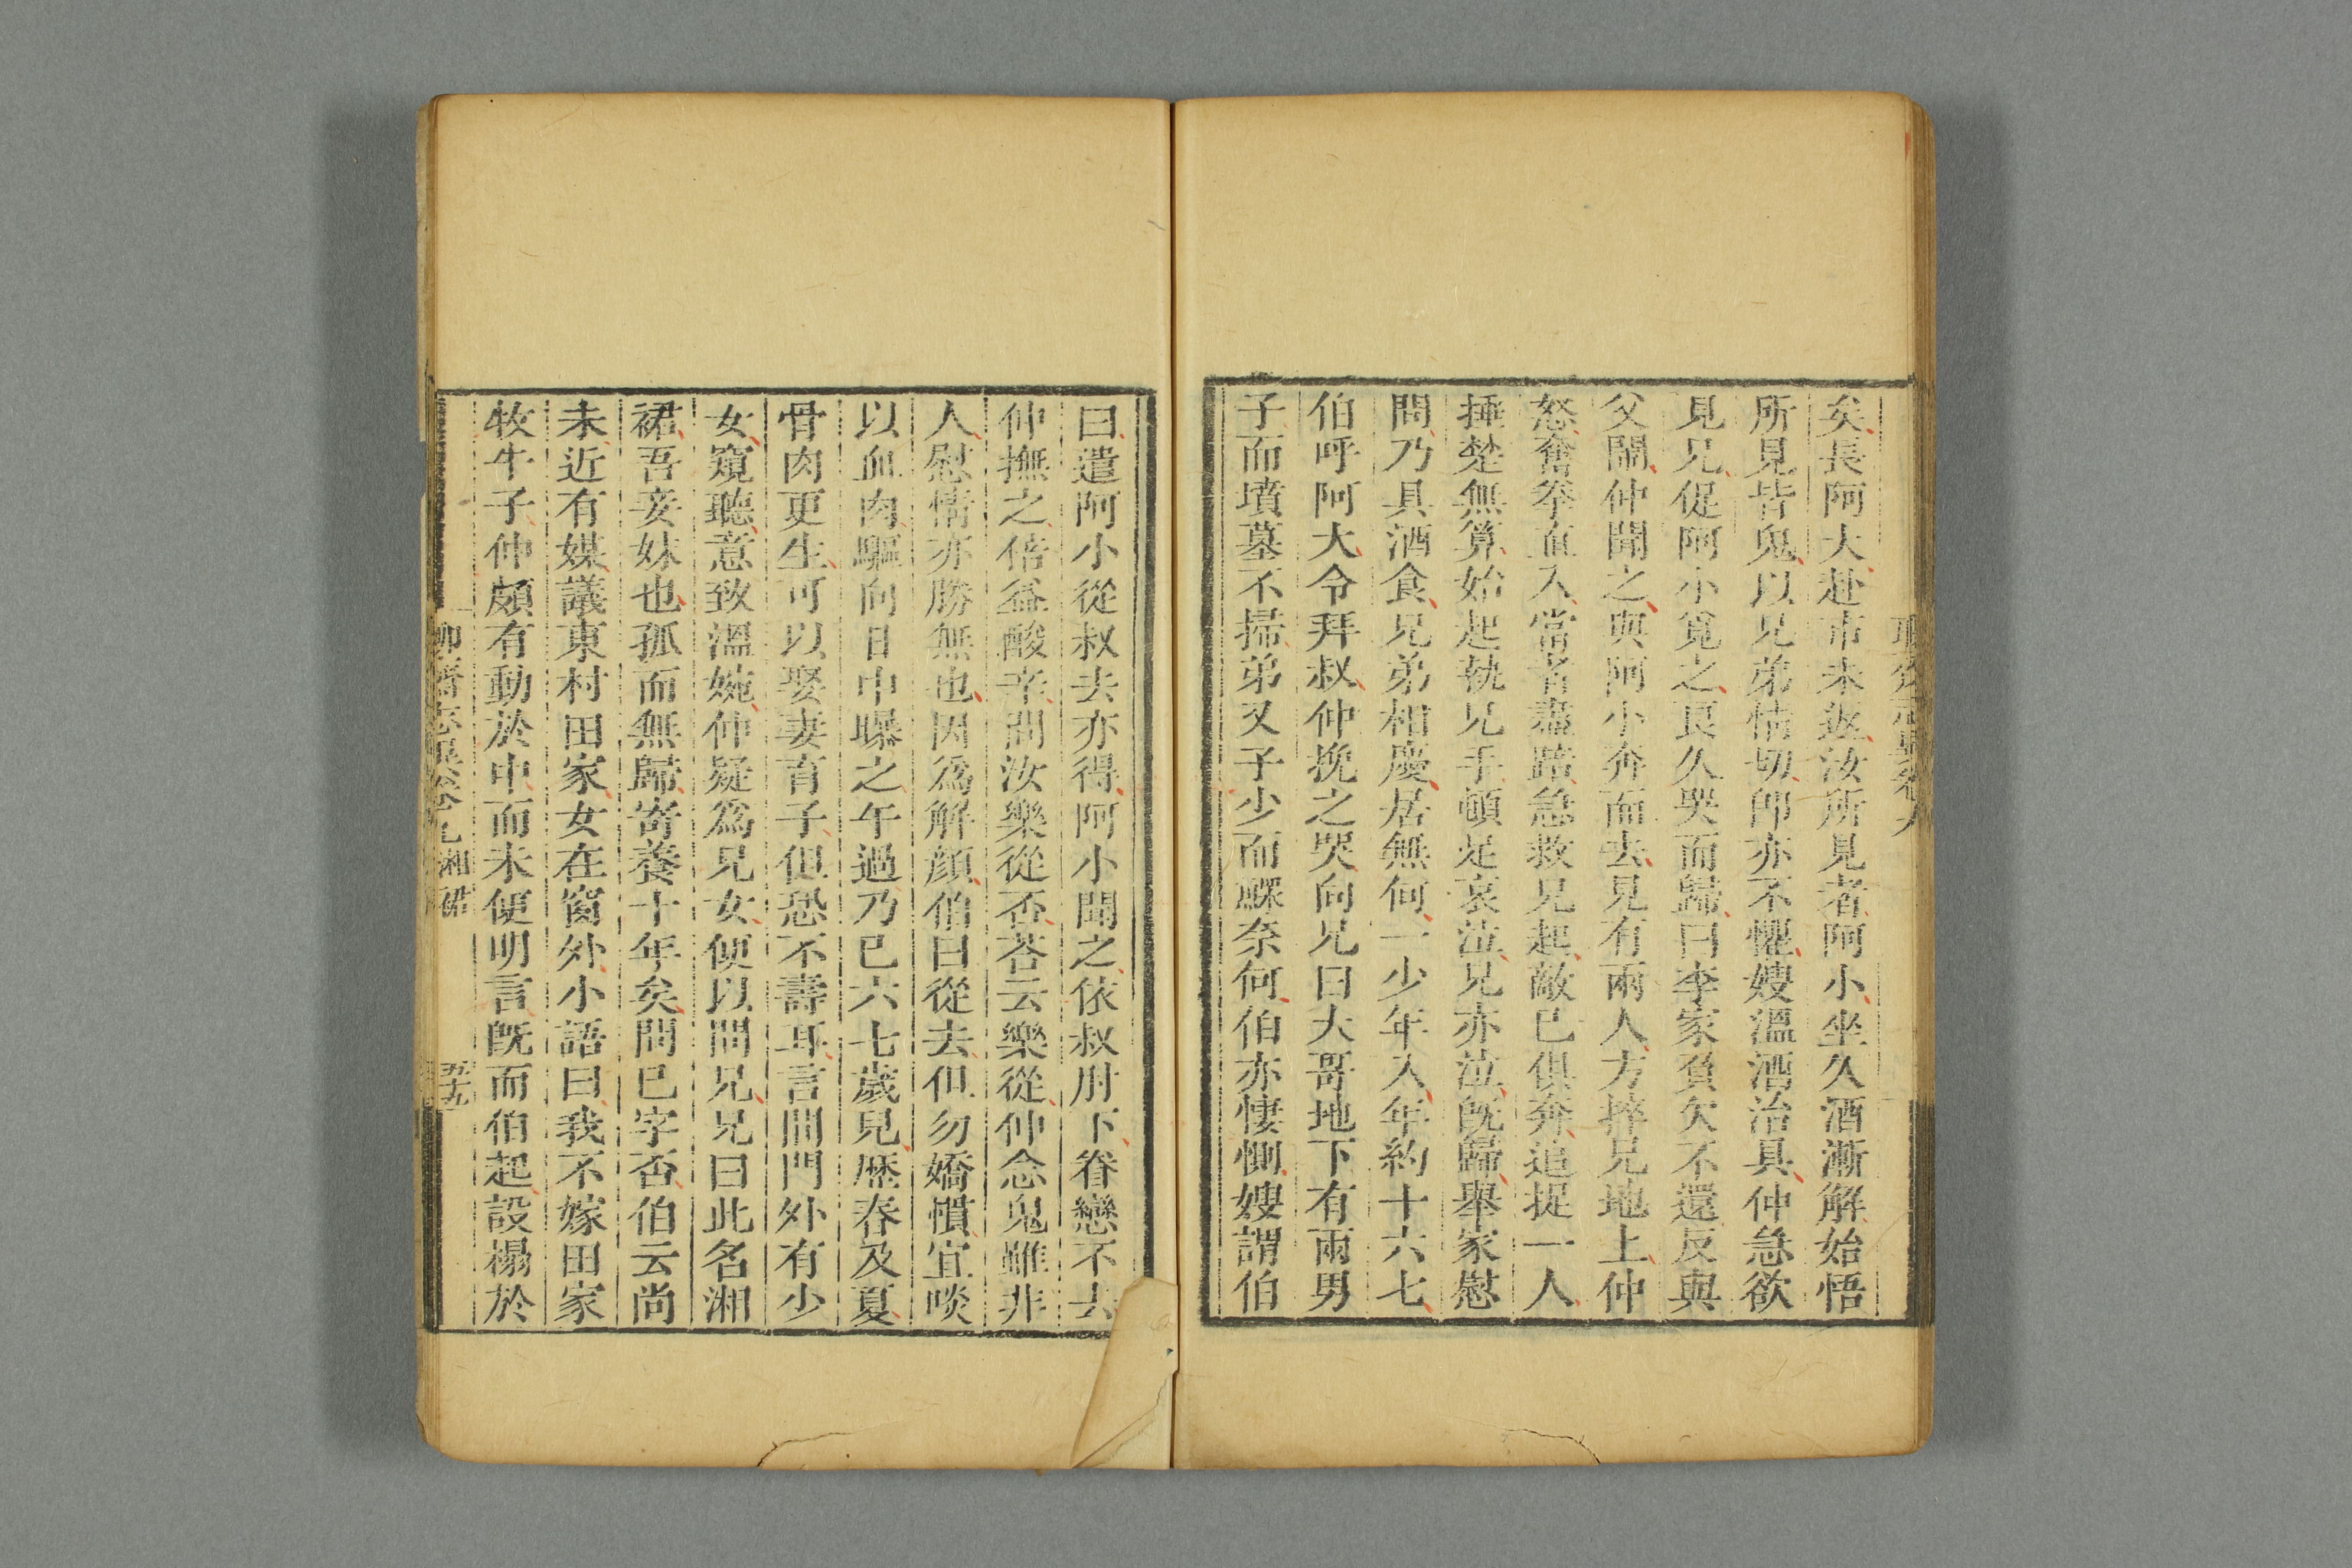 矣長阿大赴市未返汝所見者阿小坐久酒漸解始悟
所見皆鬼以兄弟情切卽亦不懼嫂溫酒治具仲急欲
見兄促阿小覓之良久哭而歸曰李家負欠不還反與
父鬧仲聞之與阿小奔而去見有兩人方捽兄地上仲
怒奮拳直入當者盡踣急救兄起敵已俱奔追捉一人
捶楚無算始起執兄手頓足哀泣兄亦泣旣歸舉家慰
問乃具酒食兄弟相慶居無何一少年入年約十六七
伯呼阿大令拜叔仲挽之哭向兄曰大哥地下有兩男
子而墳墓不掃弟又子少而鰥奈何伯亦悽惻嫂謂伯
曰遣阿小從叔去亦得阿小聞之依叔肘下眷戀不去
仲撫之倍益酸辛問汝樂從否荅云樂從仲念鬼雖非
人慰情亦勝無也因爲解顏伯曰從去但勿嬌慣宜啖
以血肉驅向日中曝之午過乃已六七歲兒歷春及夏
骨肉更生可以娶妻育子但恐不壽耳言間門外有少
女窺聽意致溫婉仲疑爲兄女便以問兄兄曰此名湘
裙吾妾妹也孤而無歸寄養十年矣問已字否伯云尚
未近有媒議東村田家女在窗外小語曰我不嫁田家
牧牛子仲頗有動於中而未便明言旣而伯起設榻於
湘裙
五十九